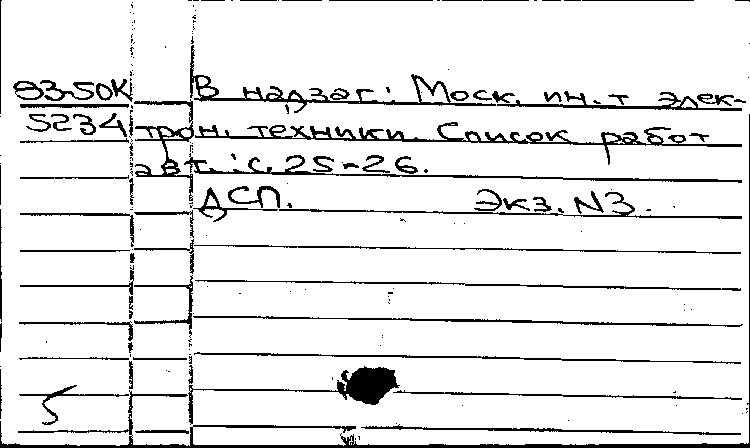 83-50К В надзаг.: Моск. ин.т элек-
5234 трон. техники. Список работ
авт.: с. 25-26.
ДСП. Экз. N3.
5